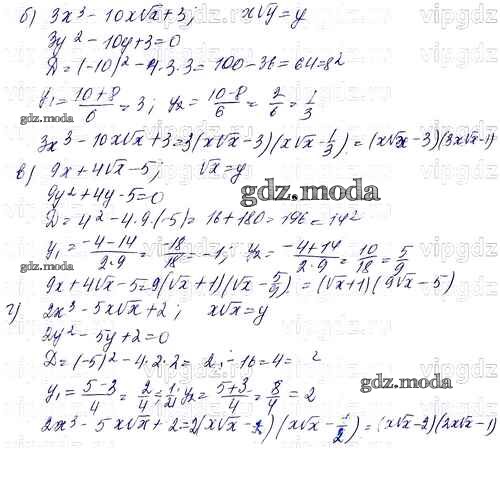 б) 3x³ - 10x√x + 3; x√y = y
3y² - 10y + 3 = 0
D = (-10)² - 4·3·3 = 100 - 36 = 64 = 8²
y₁ = (10+8)/6 = 3; y₂ = (10-8)/6 = 2/6 = 1/3
3x³ - 10x√x + 3 = 3(x√x - 3)(x√x - 1/3) = (x√x - 3)(3x√x - 1)
в) 9x + 4√x - 5; √x = y
9y² + 4y - 5 = 0
D = 4² - 4·9·(-5) = 16 + 180 = 196 = 14²
y₁ = (-4-14)/(2·9) = -18/18 = -1; y₂ = (-4+14)/(2·9) = 10/18 = 5/9
9x + 4√x - 5 = 9(√x + 1)(√x - 5/9) = (√x + 1)(9√x - 5)
г) 2x³ - 5x√x + 2; x√x = y
2y² - 5y + 2 = 0
D = (-5)² - 4·2·2 = 2 - 16 = 4 = ²
y₁ = (5-3)/4 = 2/4 = 1/2; y₂ = (5+3)/4 = 8/4 = 2
2x³ - 5x√x + 2 = 2(x√x - 2)(x√x - 1/2) = (x√x - 2)(2x√x - 1)
gdz.moda
gdz.moda
gdz.moda
gdz.moda
gdz.moda
vipgdz